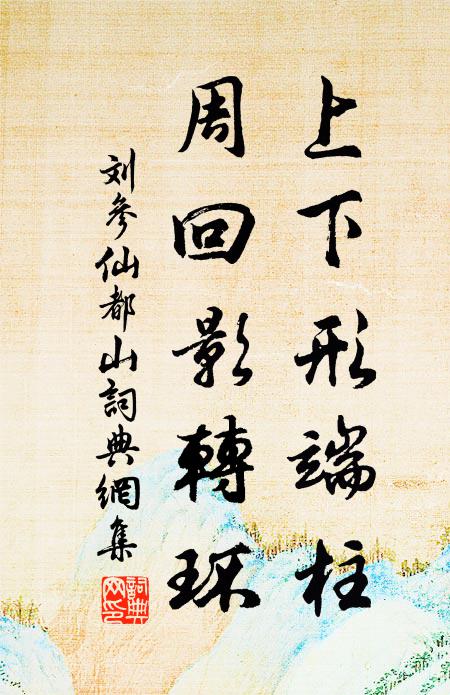 上下形端柱
周回影轉环
刘参仙都山詞典網集
詞典网印